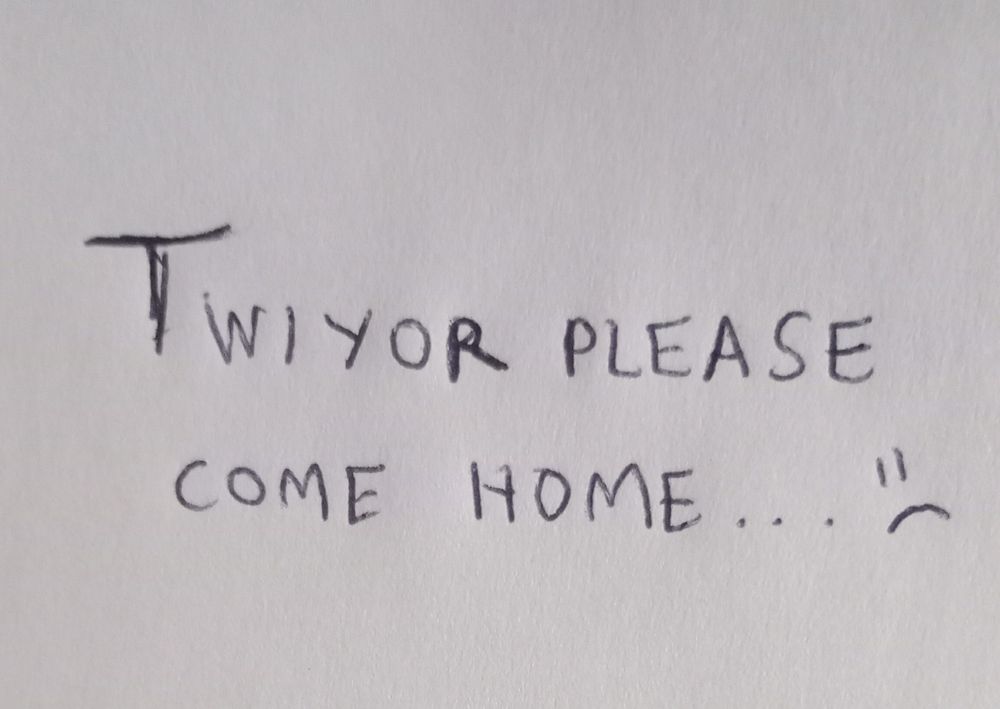 TWIYOR PLEASE
COME HOME...